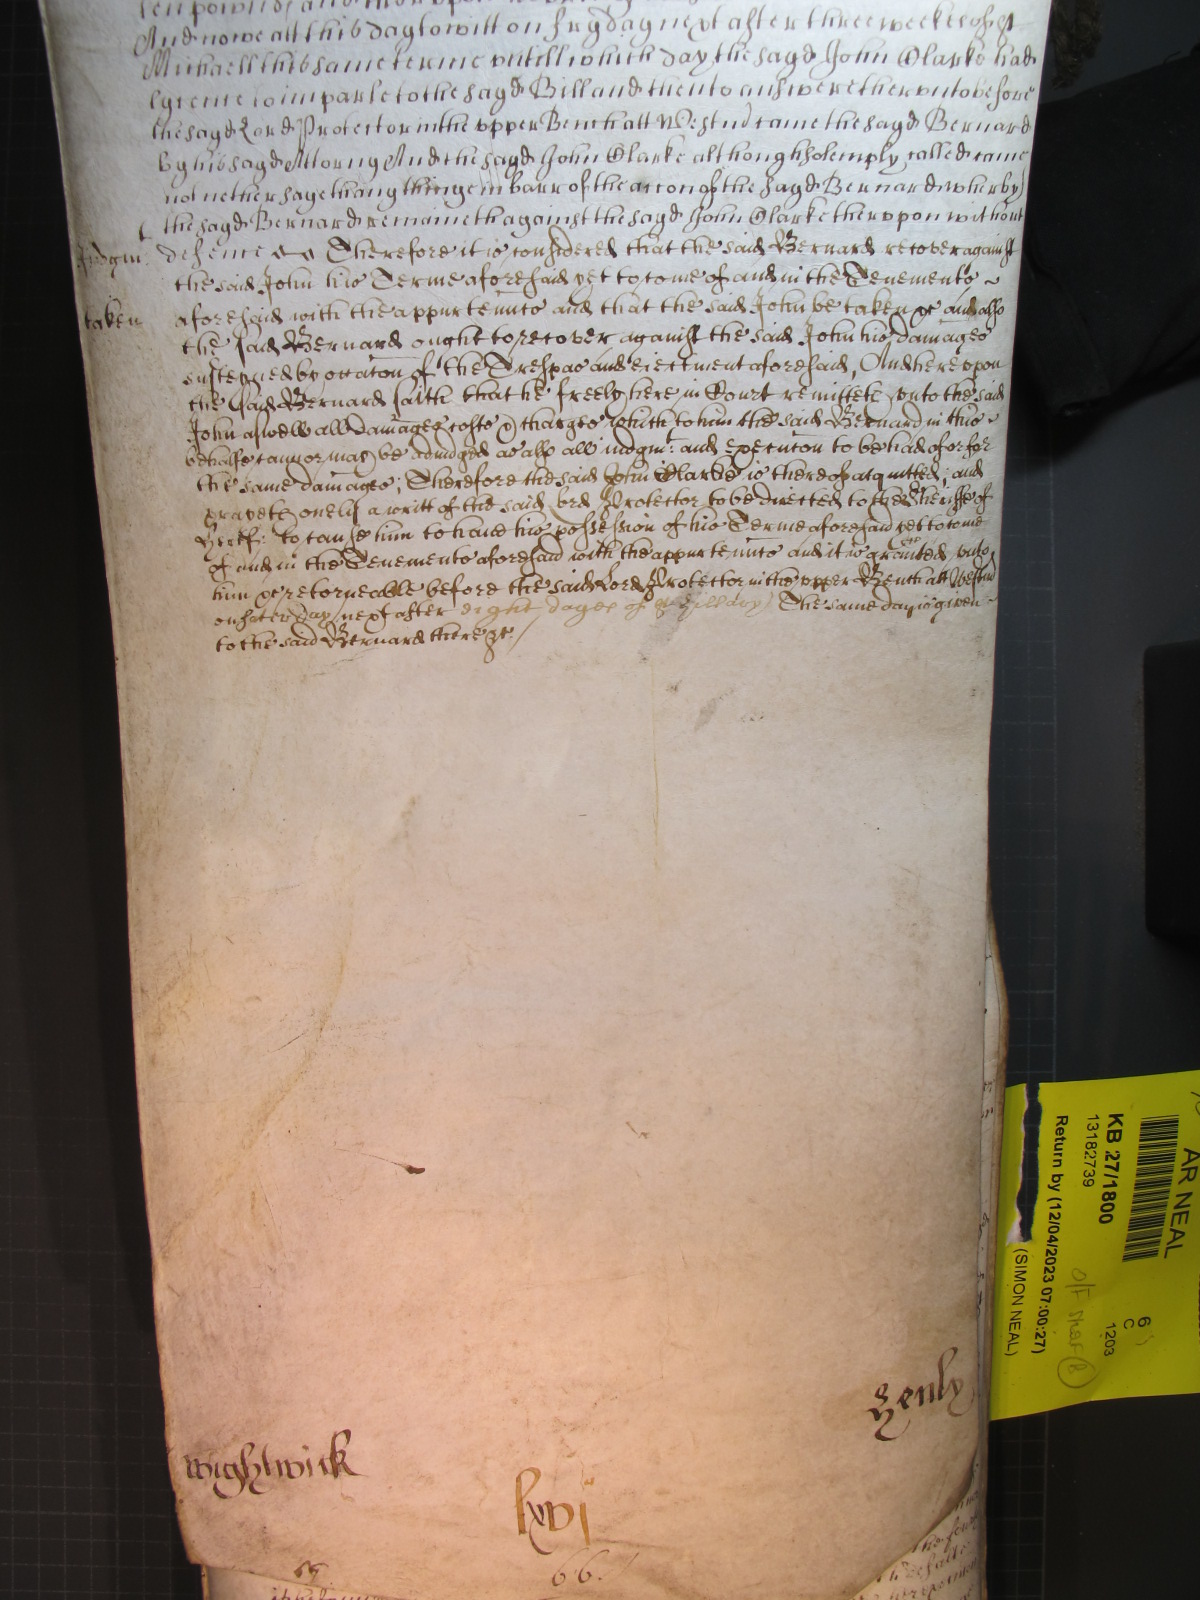 ten pownds and ther upon
And nowe att this day to witt on fryday next after three weekes of St
Michaell this same terme untill which day the sayd John Clarke had
lycence to imparle to the sayd Bill and then to answere therunto before
the sayd Lord Protector in the upper Bench att Westm came the sayd Bernard
by his sayd Attorny And the sayd John Clarke although solemply called came
not nether sayethanythinge in barr of the accon of the sayd Bernard wherby
the sayd Bernard remaineth against the sayd John Clarke therupon without
Judgm: defence Therefore it is considered that the said Bernard recover against
the said John his Terme aforesaid yet to come of and in the Tenements
taken aforesaid with the appurtennts and that the said John be taken &c and also
the said Bernard ought to recover against the said John his damages
susteyned by occacon of the Trespas and eiectment aforesaid, And hereupon
the said Bernard saith that he freely here in Court remitteth unto the said
John aswell all damages costs & charges which to him the said Bernard in this
behalfe cann or may be adiudged as also all iudgmt: and execucon to be had of or for
the same damages; Therefore the said John Clarke is thereof acquitted; and
prayeth onely a writt of the said Lord Protector to be directed to the Sheriffe of
Berks: to cause him to have his possession of his Terme aforesaid yet to come
of and in the Tenements aforesaid with the appurtennts and it is graunted unto
him &c retorneable before the said Lord Protector in the upper Bench att Westm
on Saterday next after eight dayes of St Hillary The same day is given
to the said Bernard there &c./
wightwick
Zenly
lxvj
66.
AR NEAL
KB 27/1800
13182739
Return by (12/04/2023 07:00:27)
(SIMON NEAL)
6
C
1203